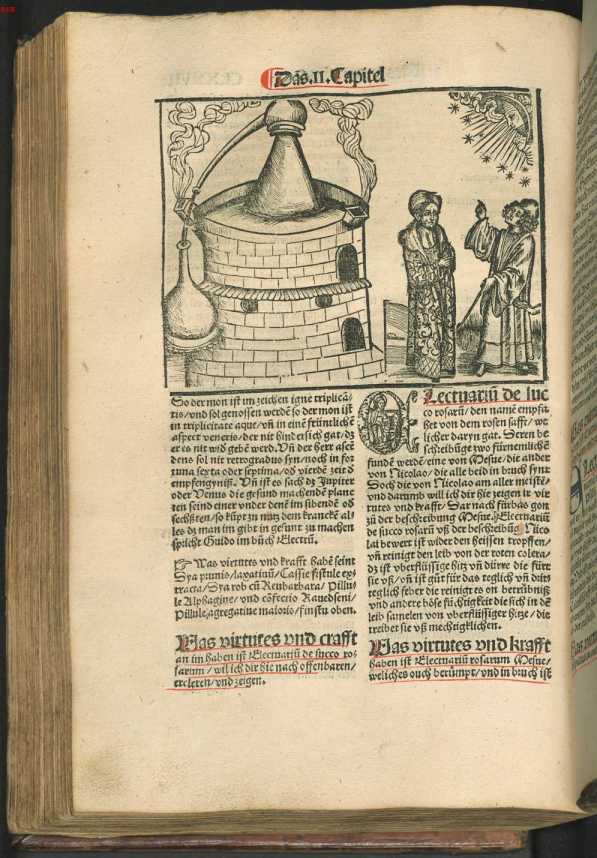 Das .II. Capitel
So der mon ist im zeichen igne triplicā
ris/vnd sol genossen werdē so der mon ist
in triplicitate aque/vñ in einē früntlichē
aspect veneris/der nit hindersich gat/dz
er es nit wid gebē werd. Vñ der herr ascē
dens sol nit retrogradus syn/noch in for
tuna sexta oder septima/od vierdē zeit d
empfengnyß. Vñ ist sach dz Jupiter
oder Venus die gesund machendē plane
ten seind einer vnder denē im sibendē od
sechßten/so kūpt zu nutz dem kranckē al-
les dz man im gibt in gesunt zu machen
spricht Guido im bůch Electiū.
Was virtutes vnd krafft habē seint
Dya prunis/laxatiuū/Cassie fistule ex-
tracta/Dya rob cū Reubarbara/Pillu-
le Alphagine/vnd cōfectio Hamedseni/
Pillule agregatiue maioris/finstu oben.
Was virtutes vnd crafft
an im haben ist Electuariū de succo ro-
sarum/wil ich dir hie nach offenbaren/
ercleren/vnd zeigen.
Electuariū de suc
co rosarū/den namē empfa-
het von dem rosen safft/we
licher daryn gat. Deren be
schreibūge zwo fürnemlichē
fundē werdē/eine von Mesue/die ander
von Nicolao/die alle beid in bruch synt
Doch die von Nicolao am aller meistē/
vnd darumb will ich dir hie zeigen ir vir
tutes vnd krafft/Dar nach fürbas gon
zů der beschreibung Mesue. Electuariū
de succo rosarū vß der beschreibūg Nico
lai bewert ist wider den heissen tropffen/
vñ reinigt den leib von der roten colera/
dz ist vberflüssige hitz vñ dürre die fürt
sie vß/vñ ist gůt für das teglich vñ drits
teglich feber die reinigt es on betrübniß
vnd andere böse füchtigkeit die sich in dē
leib samelen von vberflüssiger hitze/die
treibet sie vß mechtigklichen.
Was virtutes vnd krafft
haben ist Electuariū rosarum Mesue/
weliches ouch berümpt/vnd in bruch ist